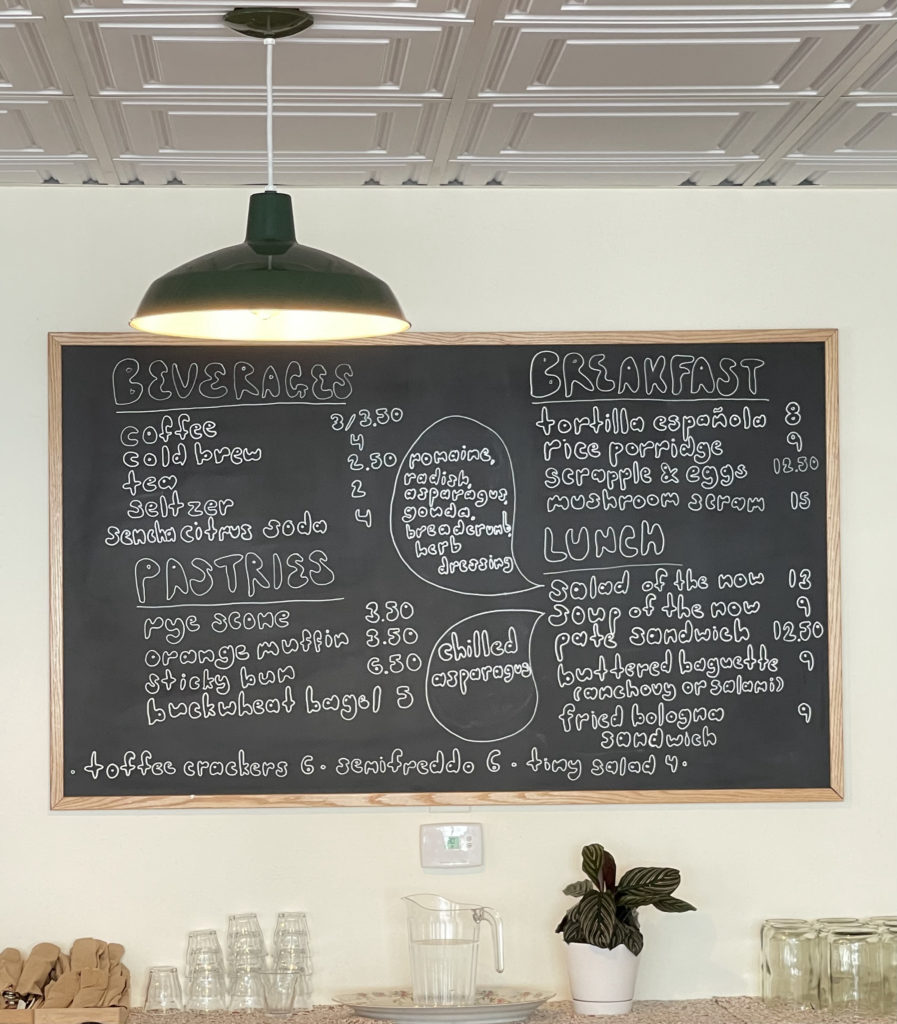 BEVERAGES
coffee 3/3.50
cold brew 4
tea 2.50
seltzer 2
sencha citrus soda 4
PASTRIES
rye scone 3.50
orange muffin 3.50
sticky bun 6.50
buckwheat bagel 5
romaine,
radish,
asparagus,
gouda,
breadcrumb,
herb
dressing
chilled
asparagus
BREAKFAST
tortilla española 8
rice porridge 9
scrapple & eggs 12.50
mushroom scram 15
LUNCH
salad of the now 13
soup of the now 9
paté sandwich 12.50
buttered baguette 9
(anchovy or salami)
fried bologna 9
sandwich
· toffee crackers 6 · semifreddo 6 · tiny salad 4 ·